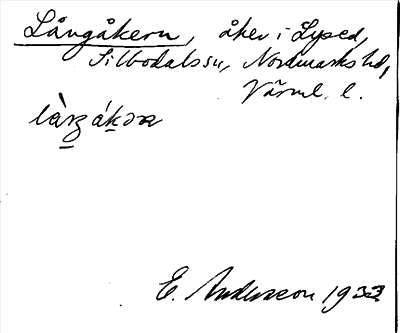 Långåkern, åker i Lysed,
Silbodals sn, Nordmarks hd,
Värml. l.
E. Andersson 1933